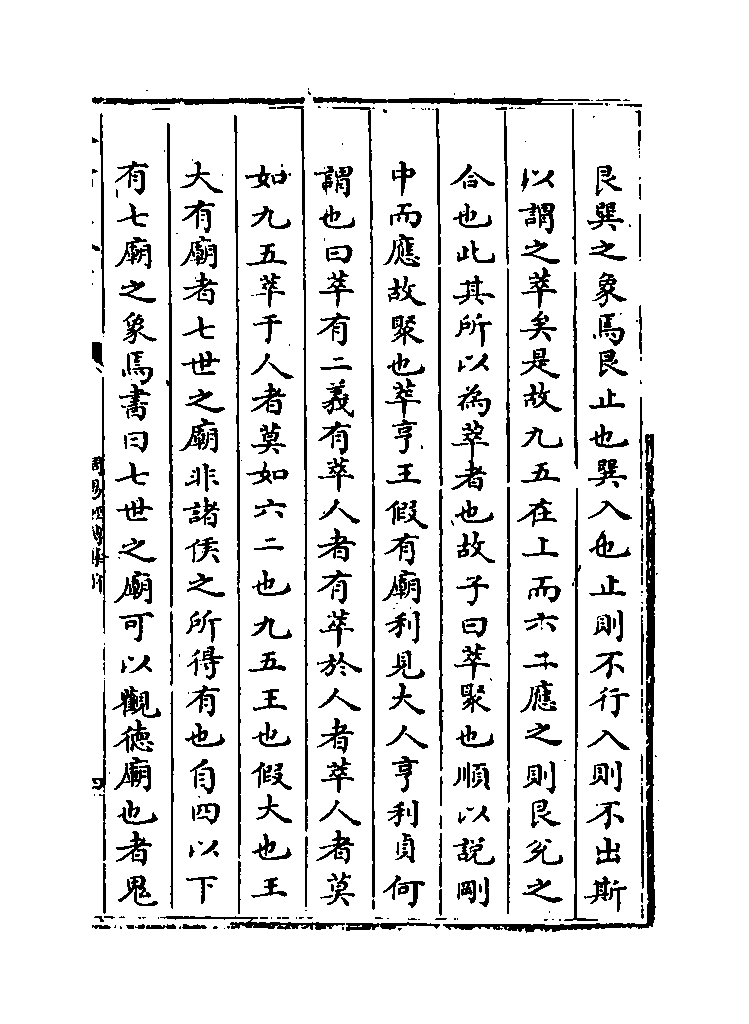 艮巽之象焉艮止也巽入也止則不行入則不出斯
以謂之萃矣是故九五在上而六二應之則艮兊之
合也此其所以為萃者也故子曰萃聚也順以説剛
中而應故聚也萃亨王假有廟利見大人亨利貞何
謂也曰萃有二義有萃人者有萃於人者萃人者莫
如九五萃于人者莫如六二也九五王也假大也王
大有廟者七世之廟非諸侯之所得有也自四以下
有七廟之象焉書曰七世之廟可以觀徳廟也者鬼